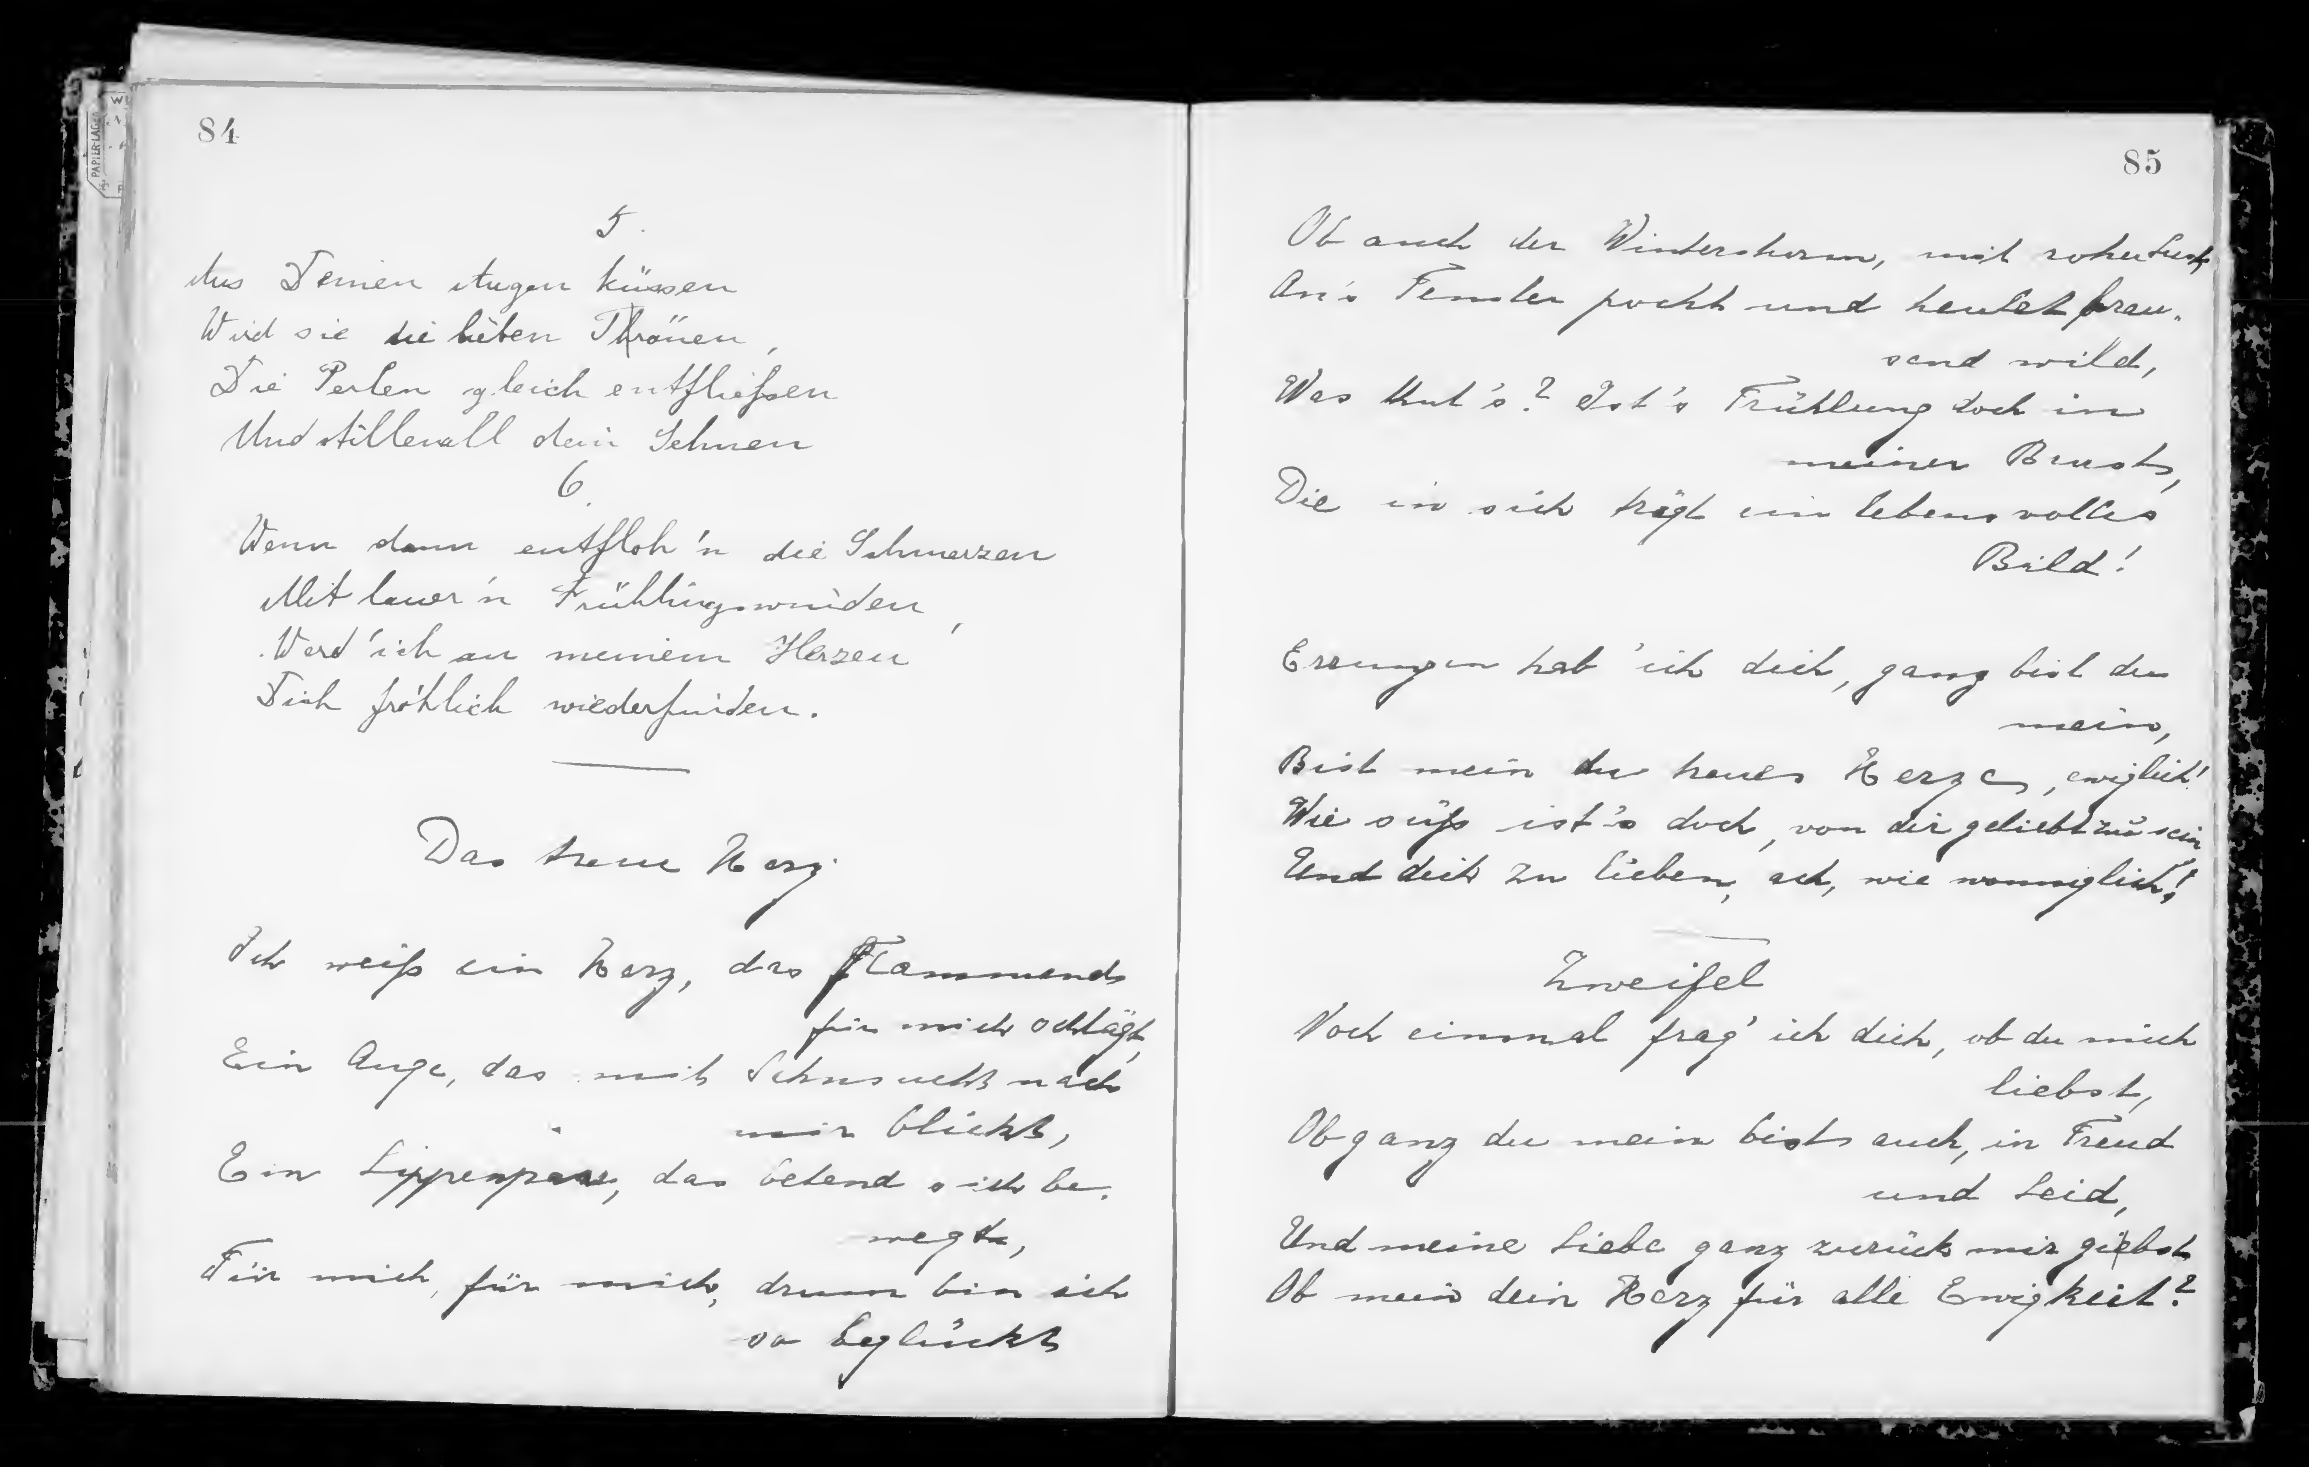 84
5.
Aus Deinen Augen küssen
Wird sie die lieben Thränen,
Die Perlen gleich entfließen
Und stillen all dein Sehnen
6.
Wenn dann entfloh'n die Schmerzen
Mit lauer'n Frühlingswinden,
Werd' ich an meinem Herzen
Dich fröhlich wiederfinden.
Das treue Herz
Ich weiß ein Herz, das flammend
für mich schlägt,
Ein Auge, das mit Sehnsucht nach
mir blickt,
Ein Lippenpaar, das betend sich be-
wegt,
Für mich, für mich, drum bin ich
so beglückt
85
Ob auch der Wintersturm, mit roher Lust,
An's Fenster pocht und heulet brau-
send wild,
Was thut's? Ist's Frühlung doch in
meiner Brust,
Die in sich trägt ein lebensvolles
Bild!
Errungen hab' ich dich, ganz bist du
mein,
Bist mein du treues Herze, ewiglich!
Wie süß ist's doch, von dir geliebt zu sein
Und dich zu lieben, ach, wie wonniglich!
Zweifel
Noch einmal frag' ich dich, ob du mich
liebst,
Ob ganz du mein bist auch, in Freud
und Leid,
Und meine Liebe ganz zurück mir giebst
Ob mein dein Herz für alle Ewigkeit?
PAPIER-LAGER